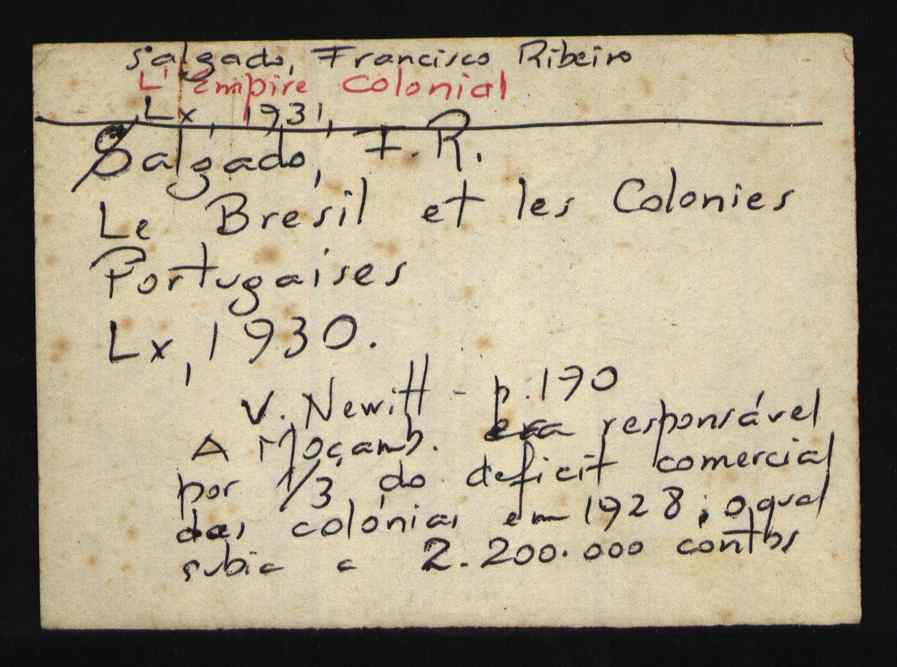 Salgado, Francisco Ribeiro
L'Empire Colonial
Lx, 1931,
Salgado, F.R.
Le Bresil et les Colonies
Portugaises
Lx, 1930.
V. Newitt - p. 170
A Moçamb. era responsável
por 1/3 do deficit comercial
das colónias em 1928; o qual
subia a 2.200.000 contos